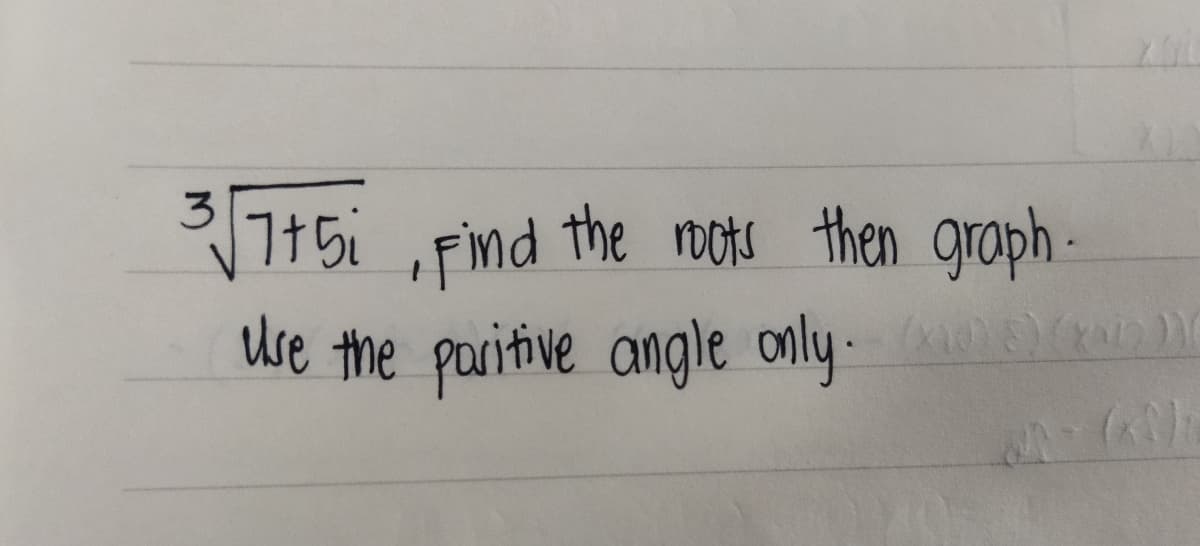 ∛7+5i , Find the roots then graph.
Use the positive angle only.